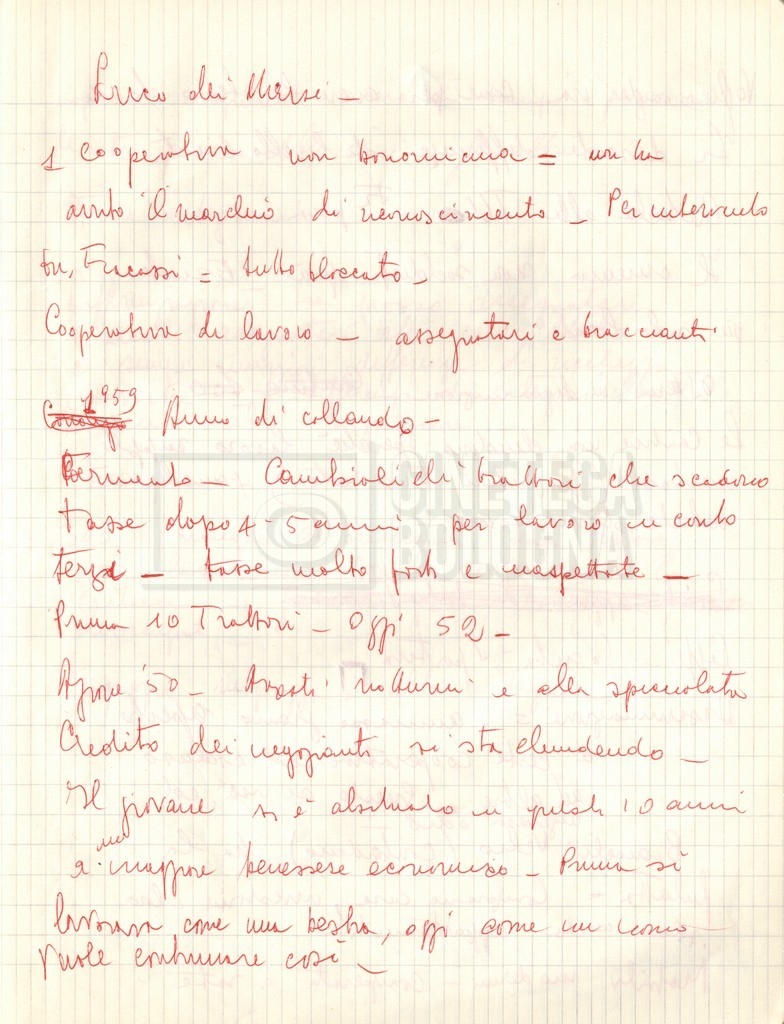 Luco dei Marsi –
1 Cooperativa non bonomiana = non ha
avuto il marchio di riconoscimento – Per intervento
on. Fracassi = tutto bloccato –
Cooperativa di lavoro – assegnatari e braccianti
1959 Anno di collaudo –
Fermento – Cambiali di trattori che scadono
Tasse dopo 4-5 anni per lavoro in conto
terzi – tasse molto forti e inaspettate –
Prima 10 Trattori – Oggi 52 –
'50 – Arresti notturni e alla spicciolata
Credito dei negozianti si sta chiudendo –
Il giovane si è abituato in questi 10 anni
a un maggiore benessere economico – Prima si
lavorava come una bestia, oggi come un uomo –
Vuole continuare così –
CINETECA
BOLOGNA